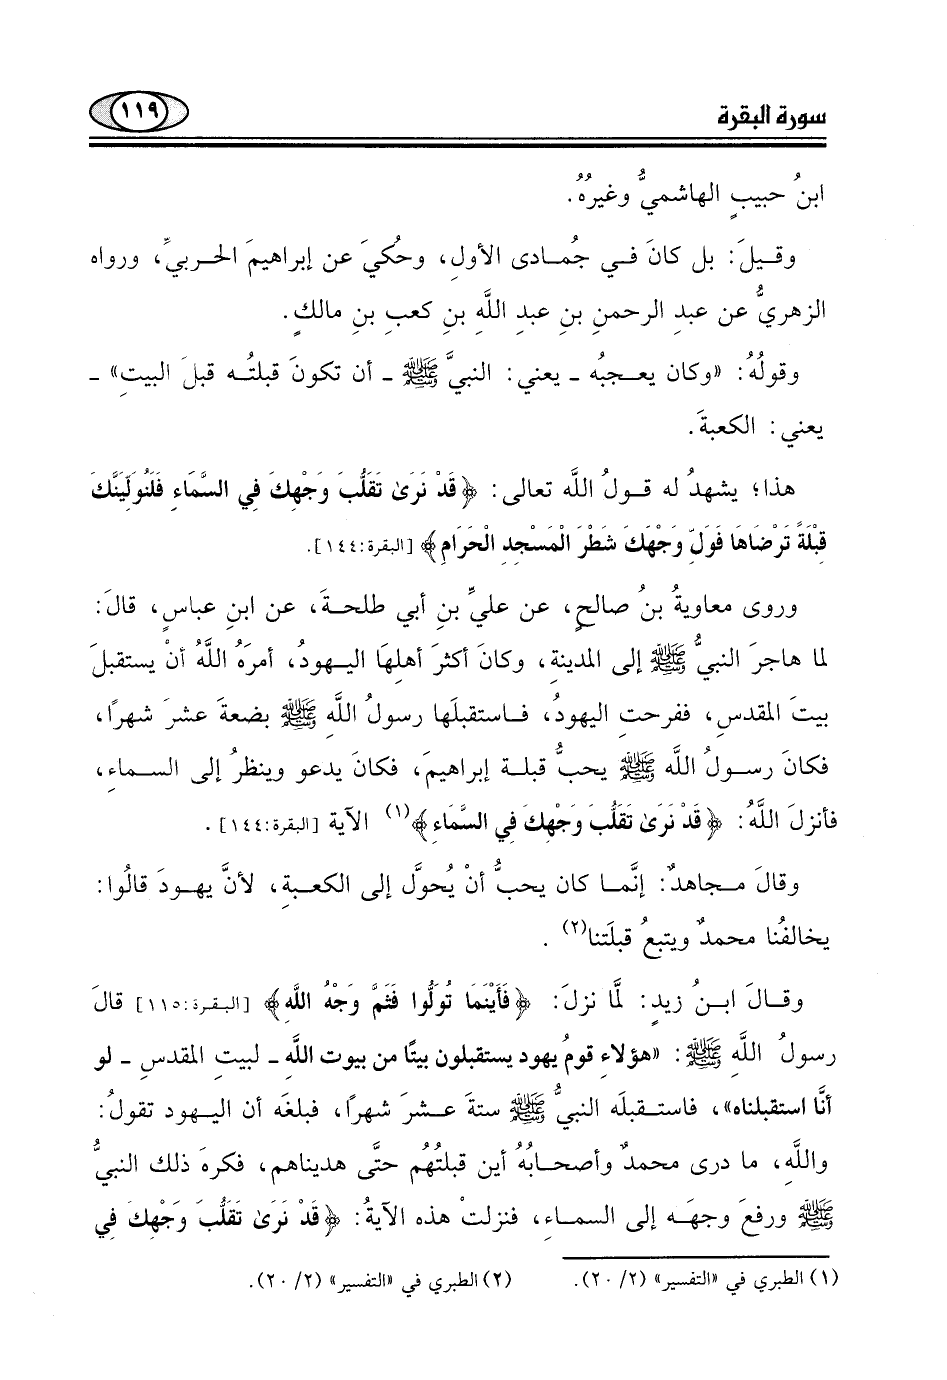 سورة البقرة
١١٩
ابنُ حبيبٍ الهاشميُّ وغيرُهُ.
وقـيلَ: بل كانَ فـي جُمـادى الأولِ، وحُكيَ عن إبراهيمَ الحربيِّ، ورواه
الزهريُّ عن عبدِ الرحمنِ بنِ عبدِ اللَّهِ بنِ كعبِ بنِ مالكٍ.
وقولُهُ: «وكان يعـجبهُ ـ يعني: النبيَّ ﷺ ـ أن تكونَ قبلتُـه قبلَ البيتِ» ـ
يعني: الكعبةَ.
هذا؛ يشهدُ له قـولُ اللَّه تعالى: ﴿قَدْ نَرَىٰ تَقَلُّبَ وَجْهِكَ فِي السَّمَاءِ فَلَنُوَلِّيَنَّكَ
قِبْلَةً تَرْضَاهَا فَوَلِّ وَجْهَكَ شَطْرَ الْمَسْجِدِ الْحَرَامِ﴾ [البقرة:١٤٤].
وروى معاويةُ بنُ صالحٍ، عن عليِّ بنِ أبي طلحـةَ، عن ابنِ عباسٍ، قالَ:
لما هاجرَ النبيُّ ﷺ إلى المدينةِ، وكانَ أكثرَ أهلِها اليـهودُ، أمرَهُ اللَّهُ أنْ يستقبلَ
بيتَ المقدسِ، ففرحتِ اليهودُ، فـاستقبلَها رسولُ اللَّهِ ﷺ بضعةَ عشرَ شهرًا،
فكانَ رسـولُ اللَّه ﷺ يحبُّ قبلـة إبراهيمَ، فكانَ يدعو وينظرُ إلى السـماءِ،
فأنزلَ اللَّهُ: ﴿قَدْ نَرَىٰ تَقَلُّبَ وَجْهِكَ فِي السَّمَاءِ﴾(١) الآية [البقرة:١٤٤].
وقالَ مـجاهدٌ: إنَّمـا كان يحبُّ أنْ يُحولَّ إلى الكعـبةِ، لأنَّ يهـودَ قالُوا:
يخالفُنا محمدٌ ويتبعُ قبلتَنا(٢).
وقـالَ ابـنُ زيدٍ: لمَّا نزلَ: ﴿فَأَيْنَمَا تُوَلُّوا فَثَمَّ وَجْهُ اللَّهِ﴾ [البـقرة:١١٥] قالَ
رسولُ اللَّهِ ﷺ: «هؤلاءِ قومُ يهود يستقبلون بيتًا من بيوت اللَّه ـ لبيتِ المقدسِ ـ لو
أنَّا استقبلناه»، فاستـقبلَه النبيُّ ﷺ ستةَ عـشرَ شهرًا، فبلغَه أن اليـهود تقولُ:
واللَّهِ، ما درى محمدٌ وأصحـابُهُ أين قبلتُهُم حتَّى هديناهم، فكرهَ ذلك النبيُّ
ﷺ ورفعَ وجهَـه إلى السمـاءِ، فنزلتْ هذه الآيةُ: ﴿قَدْ نَرَىٰ تَقَلُّبَ وَجْهِكَ فِي
(١) الطبري في «التفسير» (٢/ ٢٠). (٢) الطبري في «التفسير» (٢/ ٢٠).